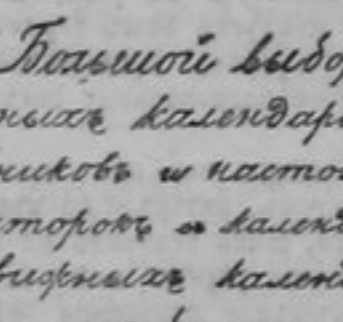 Большой выбор
ныхъ календаре
никовъ и насто
торокъ и календ
вижныхъ календ